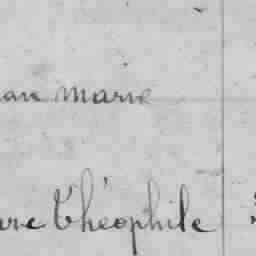 an Marie
re Théophile